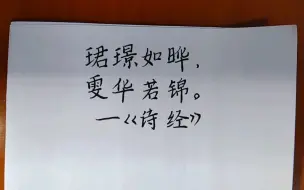 珺璟如晔，
雯华若锦。
—《诗经》